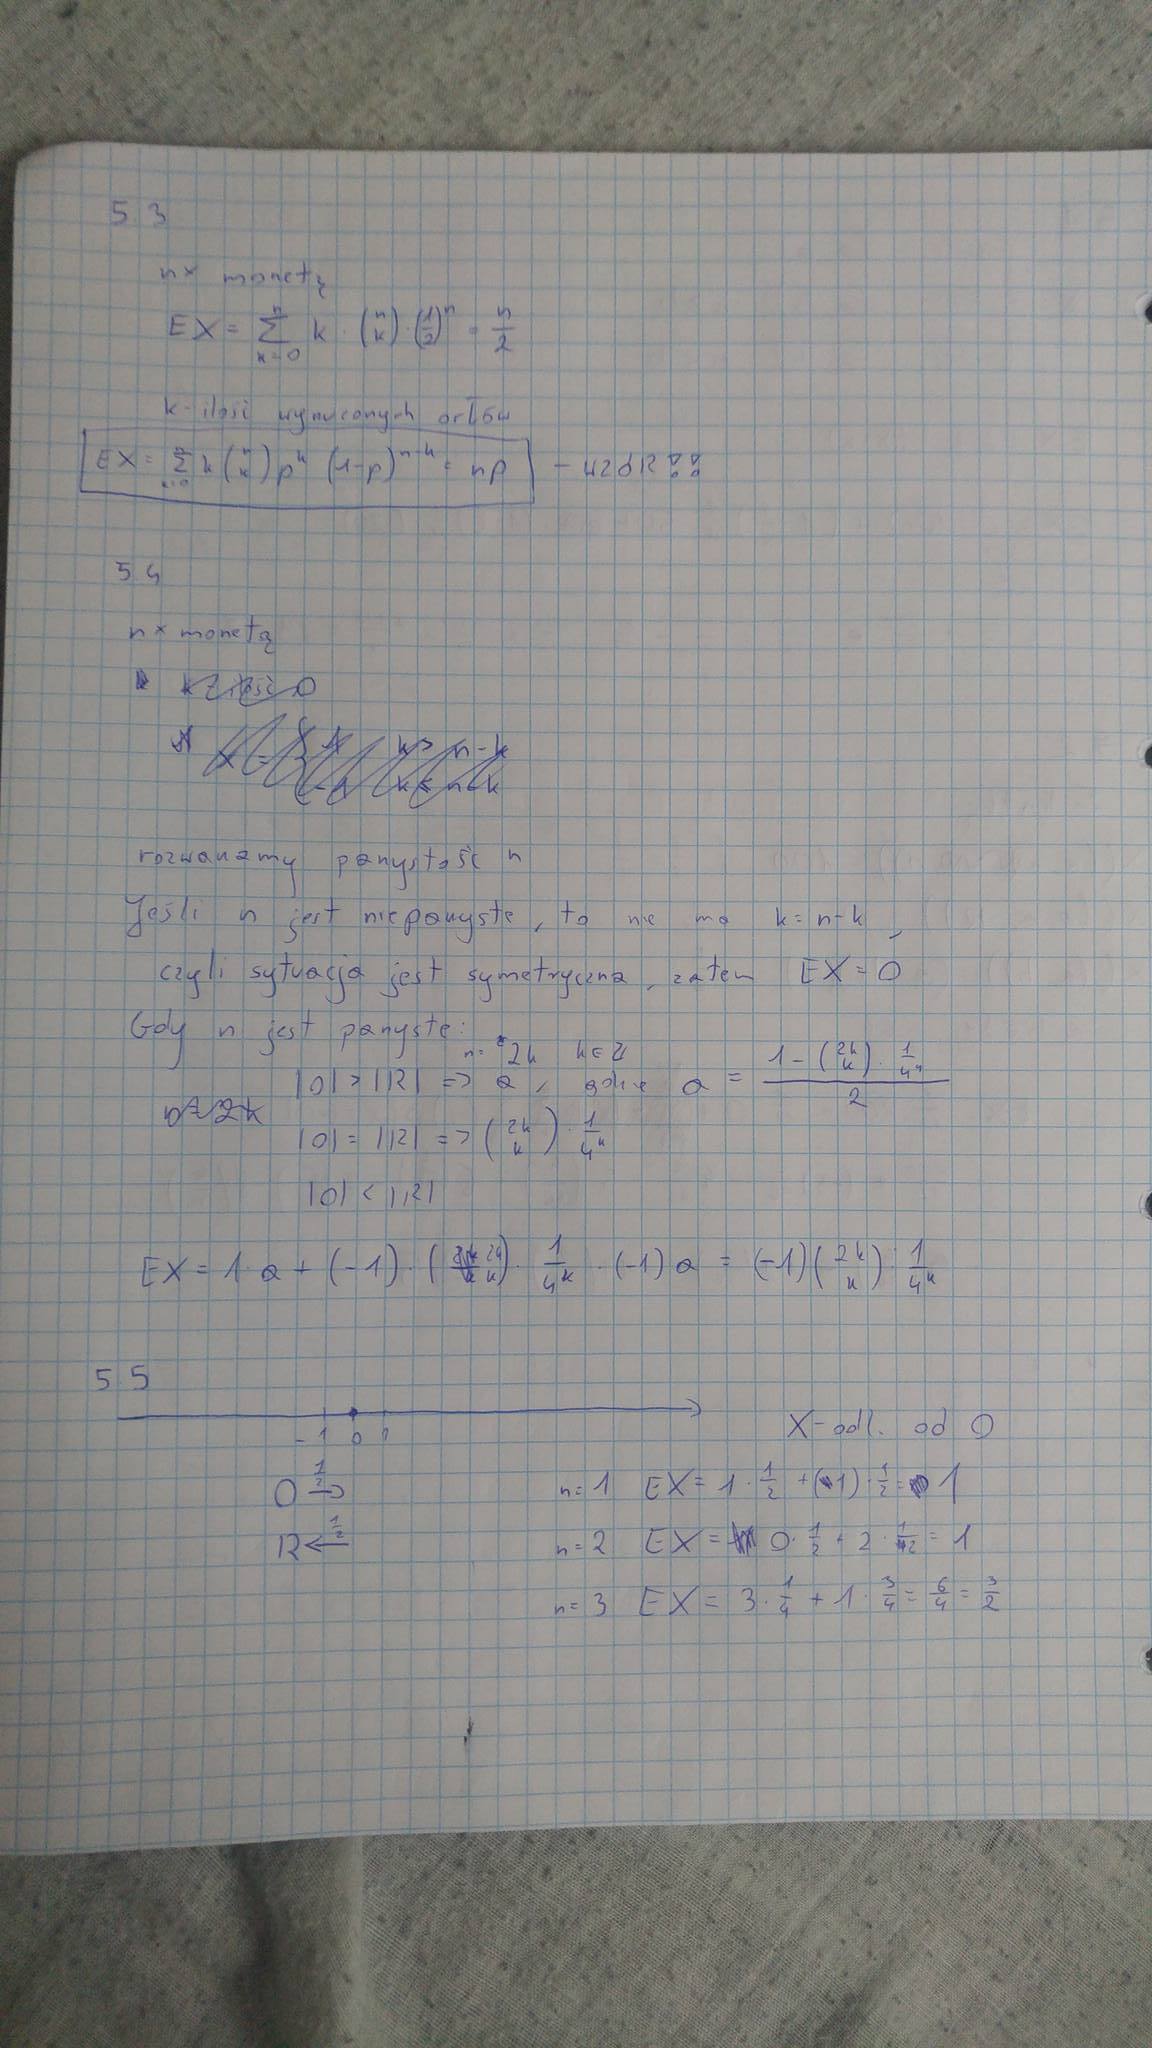 53
n× monetą
EX = \sum_{k=0}^{n} k · \binom{n}{k} · (\frac{1}{2})^n = \frac{n}{2}
k - ilość wyrzuconych orłów
EX = \sum_{k=0}^{n} k \binom{n}{k} p^k (1-p)^{n-k} = np - WZÓR!!
54
n× monetą
rozważamy parzystość n
Jeśli n jest nieparzyste, to nie ma k = n-k,
czyli sytuacja jest symetryczna, zatem EX = 0
Gdy n jest parzyste:
n = 2k k ∈ Z
|O| > |R| => a, gdzie a = \frac{1 - \binom{2k}{k} · \frac{1}{4^k}}{2}
|O| = |R| => \binom{2k}{k} · \frac{1}{4^k}
|O| < |R|
EX = 1 · a + (-1) · \binom{2k}{k} · \frac{1}{4^k} · (-1) a = (-1) \binom{2k}{k} · \frac{1}{4^k}
55
-1 0 1
X - odl. od 0
O \frac{1}{2} →
R ← \frac{1}{2}
n = 1 EX = 1 · \frac{1}{2} + (1) · \frac{1}{2} = 1
n = 2 EX = 0 · \frac{1}{2} + 2 · \frac{1}{2} = 1
n = 3 EX = 3 · \frac{1}{4} + 1 · \frac{3}{4} = \frac{6}{4} = \frac{3}{2}